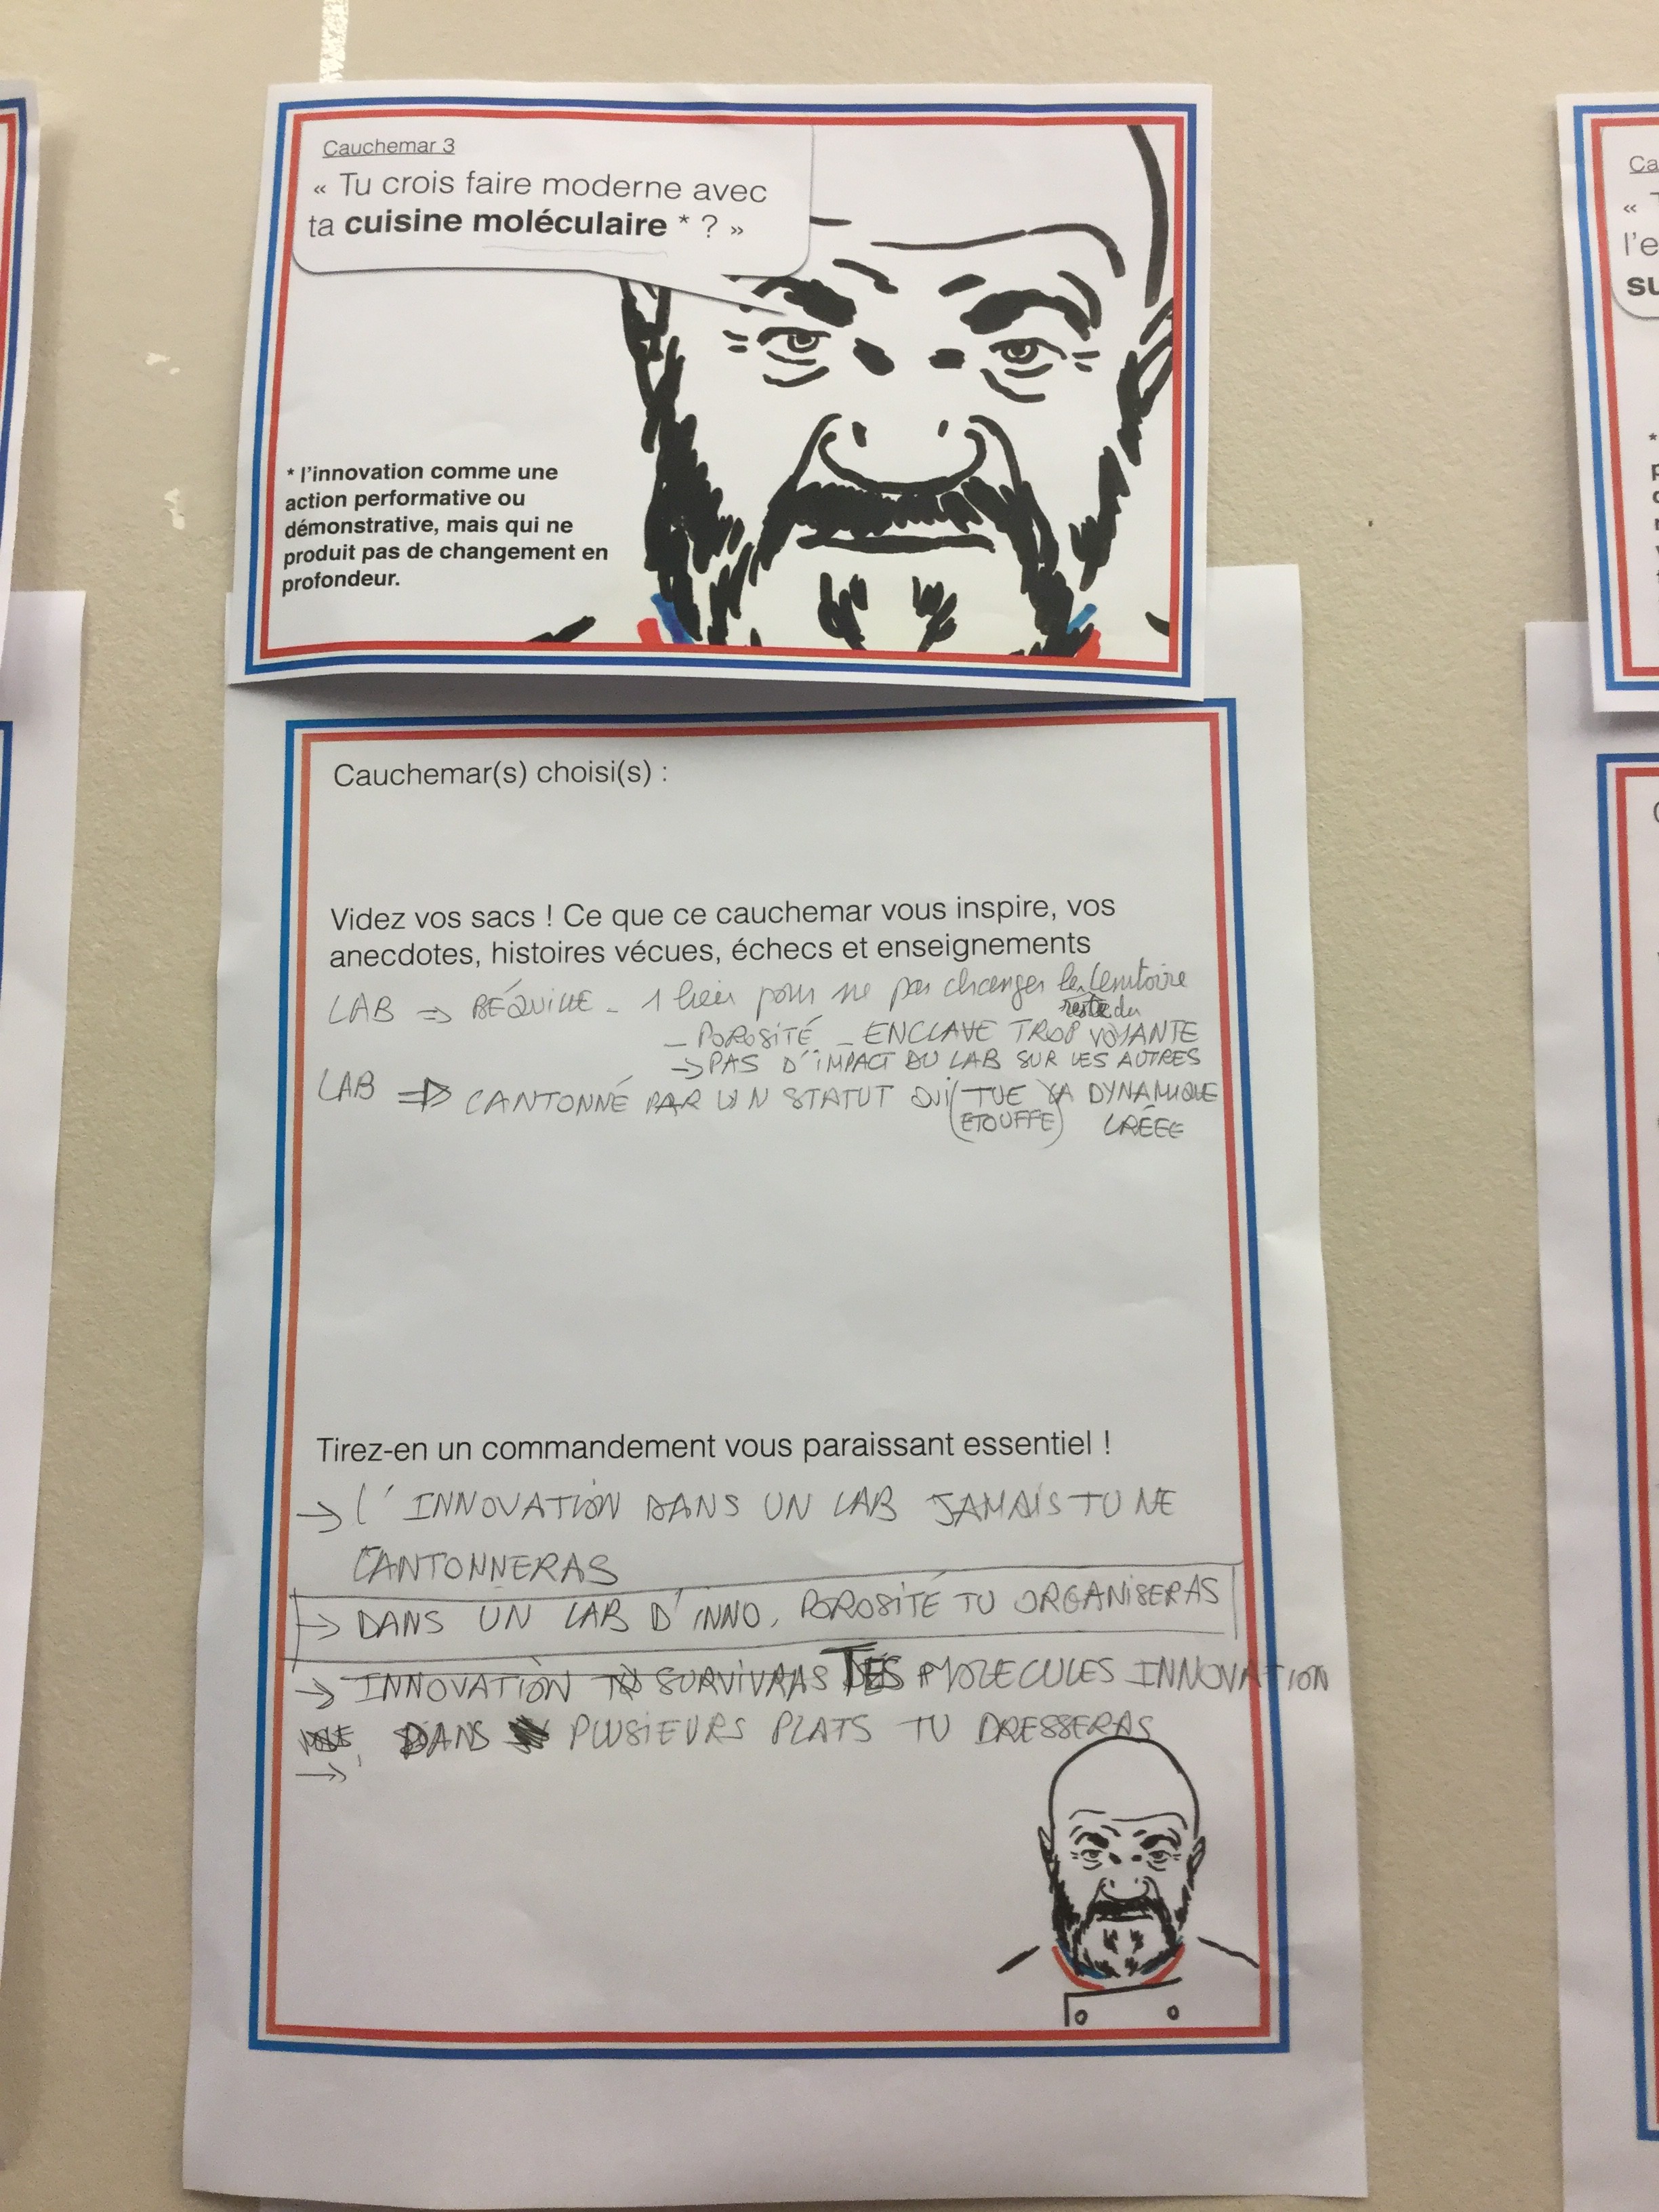 Cauchemar 3
« Tu crois faire moderne avec
ta cuisine moléculaire * ? »
* l'innovation comme une
action performative ou
démonstrative, mais qui ne
produit pas de changement en
profondeur.
Cauchemar(s) choisi(s) :
Videz vos sacs ! Ce que ce cauchemar vous inspire, vos
anecdotes, histoires vécues, échecs et enseignements
LAB => BÉQUILLE - 1 lieu pour ne pas changer le territoire
reste du
- POROSITÉ - ENCLAVE TROP VOYANTE
-> PAS D'IMPACT DU LAB SUR LES AUTRES
LAB => CANTONNÉ PAR UN STATUT QUI (TUE LA DYNAMIQUE
(ETOUFFE) CRÉÉE
Tirez-en un commandement vous paraissant essentiel !
-> L'INNOVATION DANS UN LAB JAMAIS TU NE
CANTONNERAS
-> DANS UN LAB D'INNO, POROSITÉ TU ORGANISERAS
-> INNOVATION TU SURVIVRAS TES MOLECULES INNOVATION
DANS PLUSIEURS PLATS TU DRESSERAS
->
Ca
« T
l'e
su